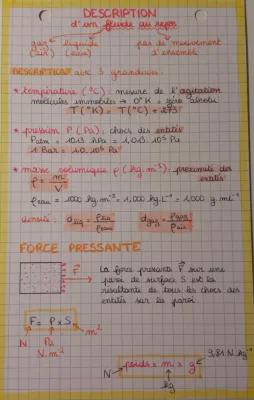 DESCRIPTION
d'un fluide au repos
gaz liquide pas de mouvement
(air) (eau) d'ensemble
DESCRIPTION avec 3 grandeurs :
* température (°C) : mesure de l'agitation
molécules immobiles → 0°K = zéro absolu
T(°K) = T(°C) + 273
* pression P (Pa) : chocs des entités
Patm = 1013 hPa = 1,013.10⁵ Pa
1 Bar = 1,0.10⁵ Pa
* masse volumique ρ (kg.m⁻³) : proximité des
entités
ρ = m/V
ρeau = 1000 kg.m⁻³ = 1,000 kg.L⁻¹ = 1,000 g.mL⁻¹
densité : dliq = ρliq/ρeau dgaz = ρgaz/ρair
FORCE PRESSANTE
F⃗
La force pressante F⃗ sur une
paroi de surface S est la
résultante de tous les chocs des
entités sur la paroi.
F = P x S
N Pa m²
N.m⁻²
9,81 N.kg⁻¹
poids = m x g
N kg